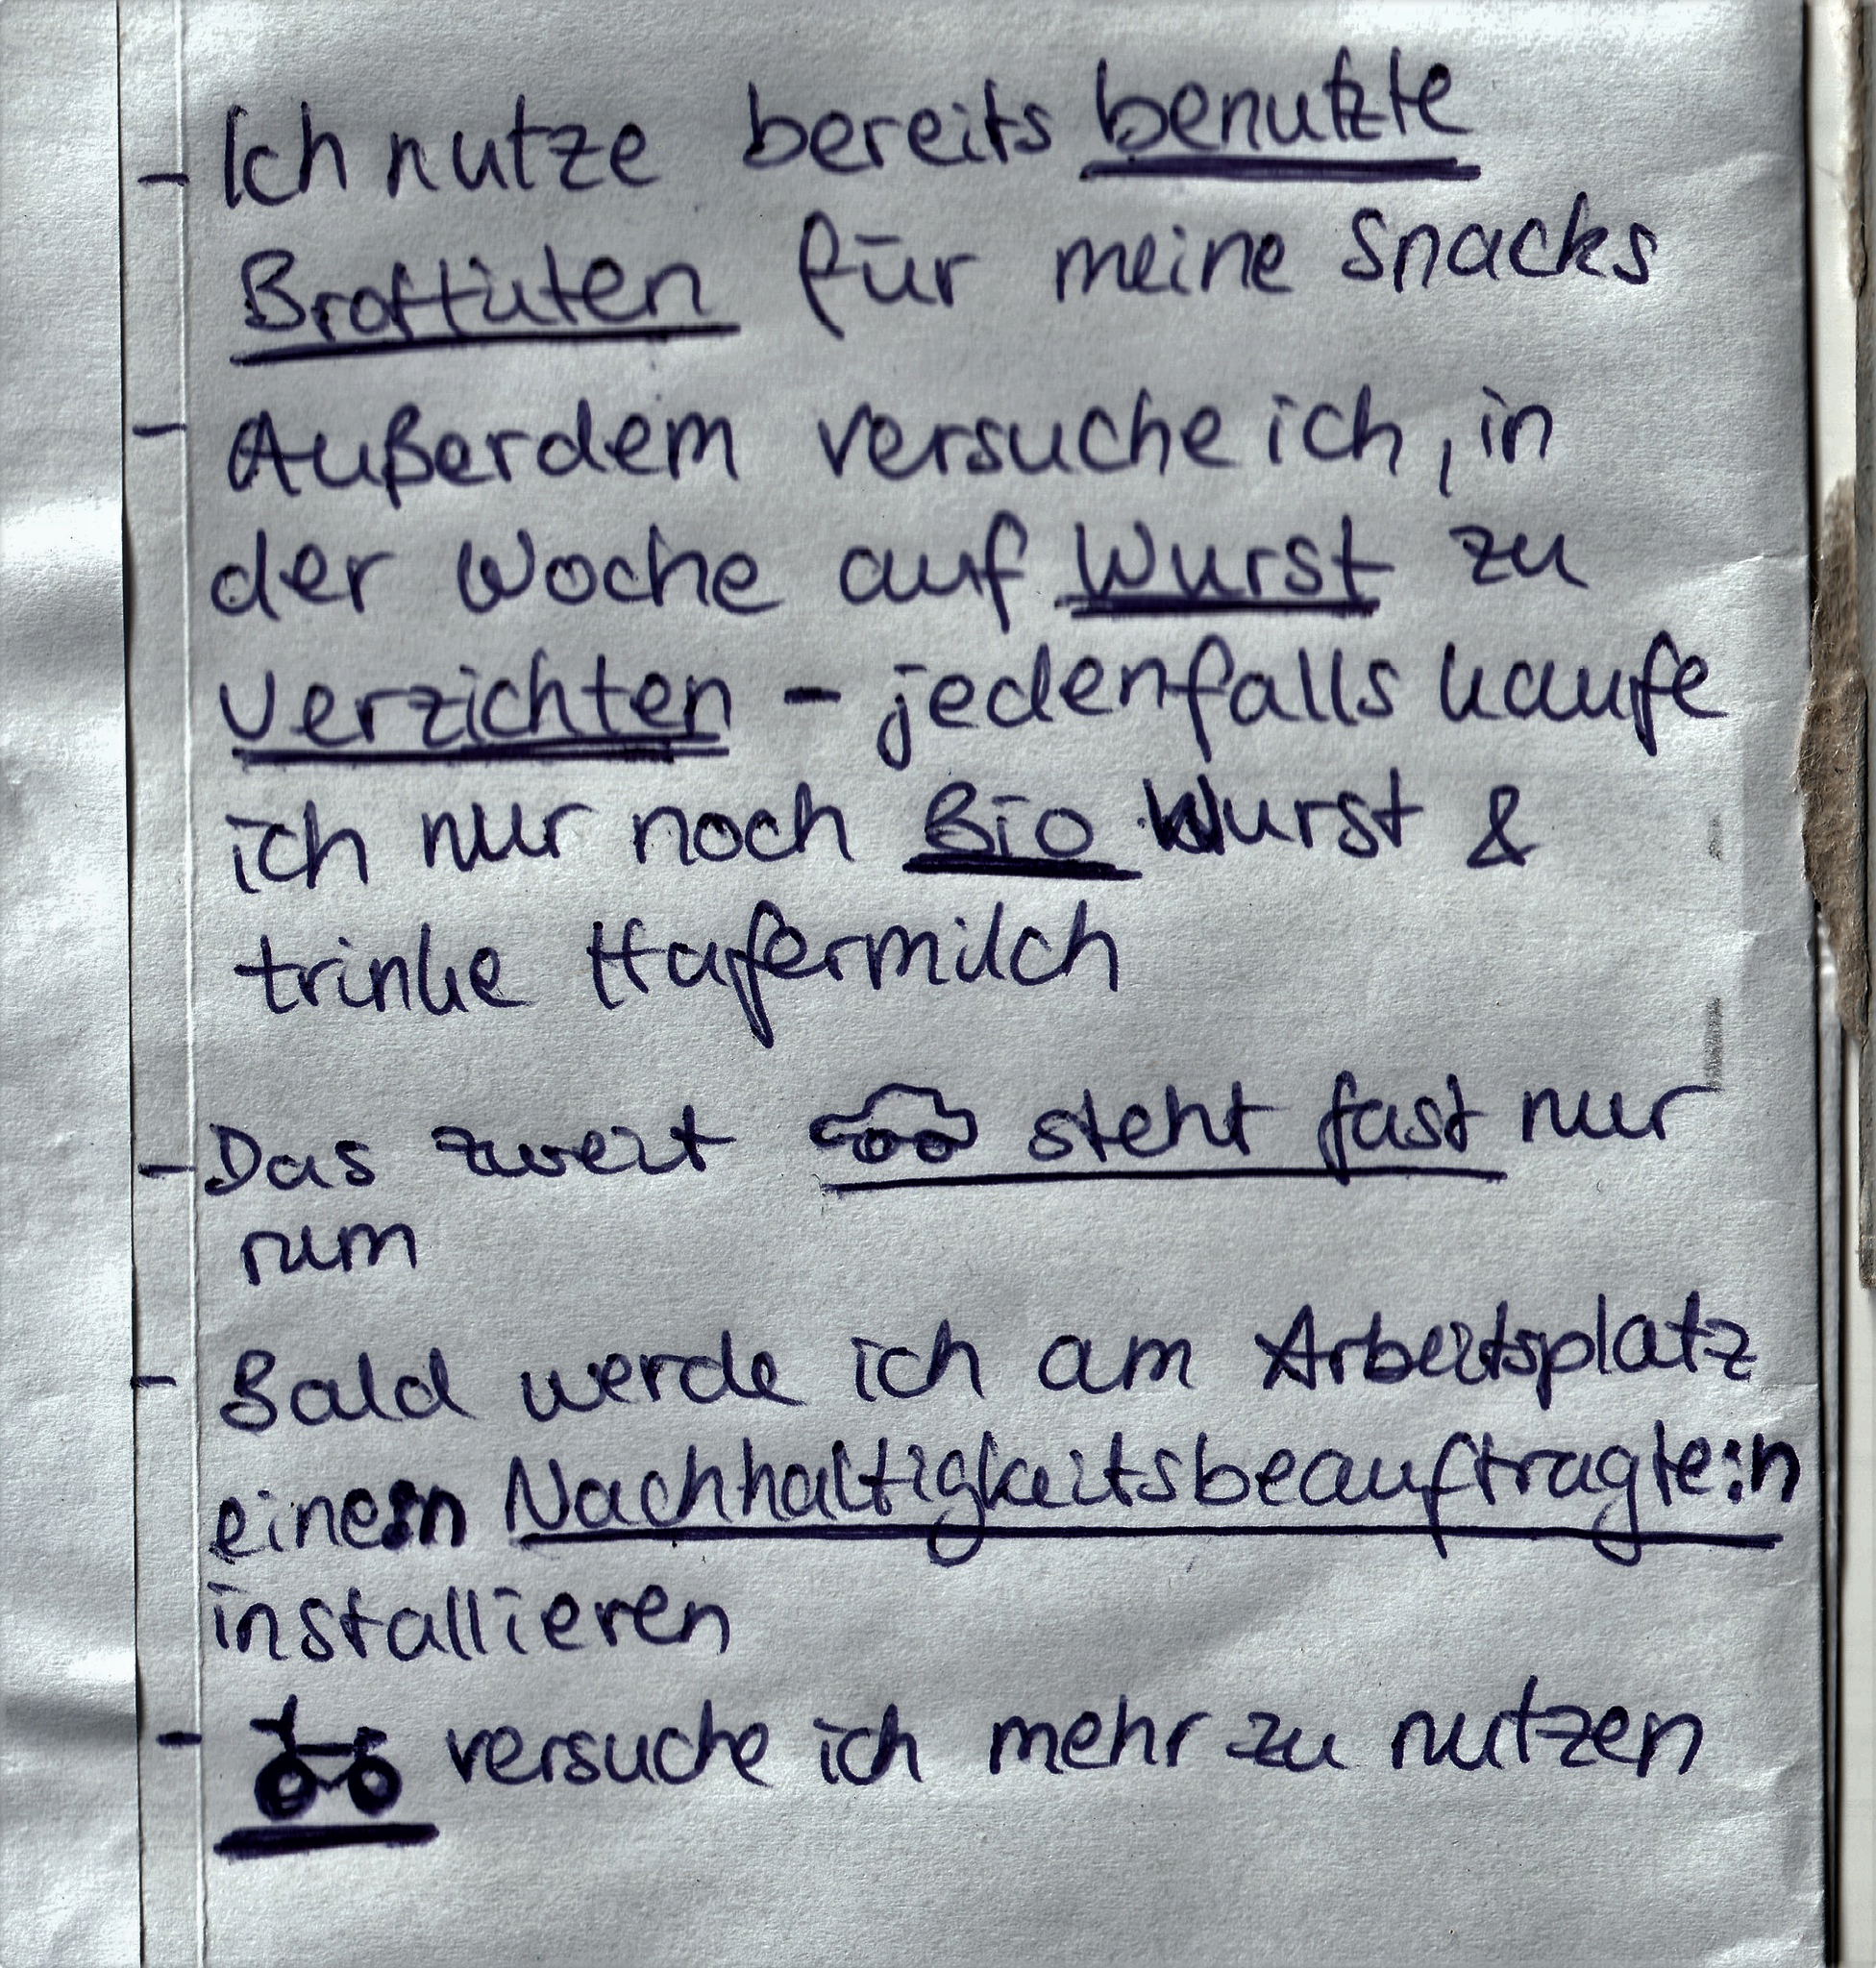 - Ich nutze bereits benutzte
Brottüten für meine Snacks
- Außerdem versuche ich, in
der Woche auf Wurst zu
verzichten - jedenfalls kaufe
ich nur noch Bio Wurst &
trinke Hafermilch
- Das zweit steht fast nur
rum
- Bald werde ich am Arbeitsplatz
einen Nachhaltigkeitsbeauftragte:n
installieren
- versuche ich mehr zu nutzen